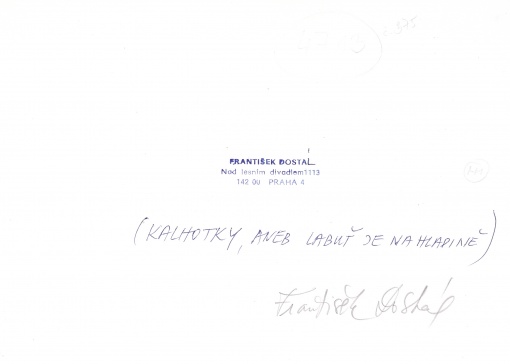 FRANTIŠEK DOSTÁL
Nad lesním divadlem 1113
142 00 PRAHA 4
(KALHOTKY, ANEB LABUŤ JE NA HLADINĚ)
František Dostál